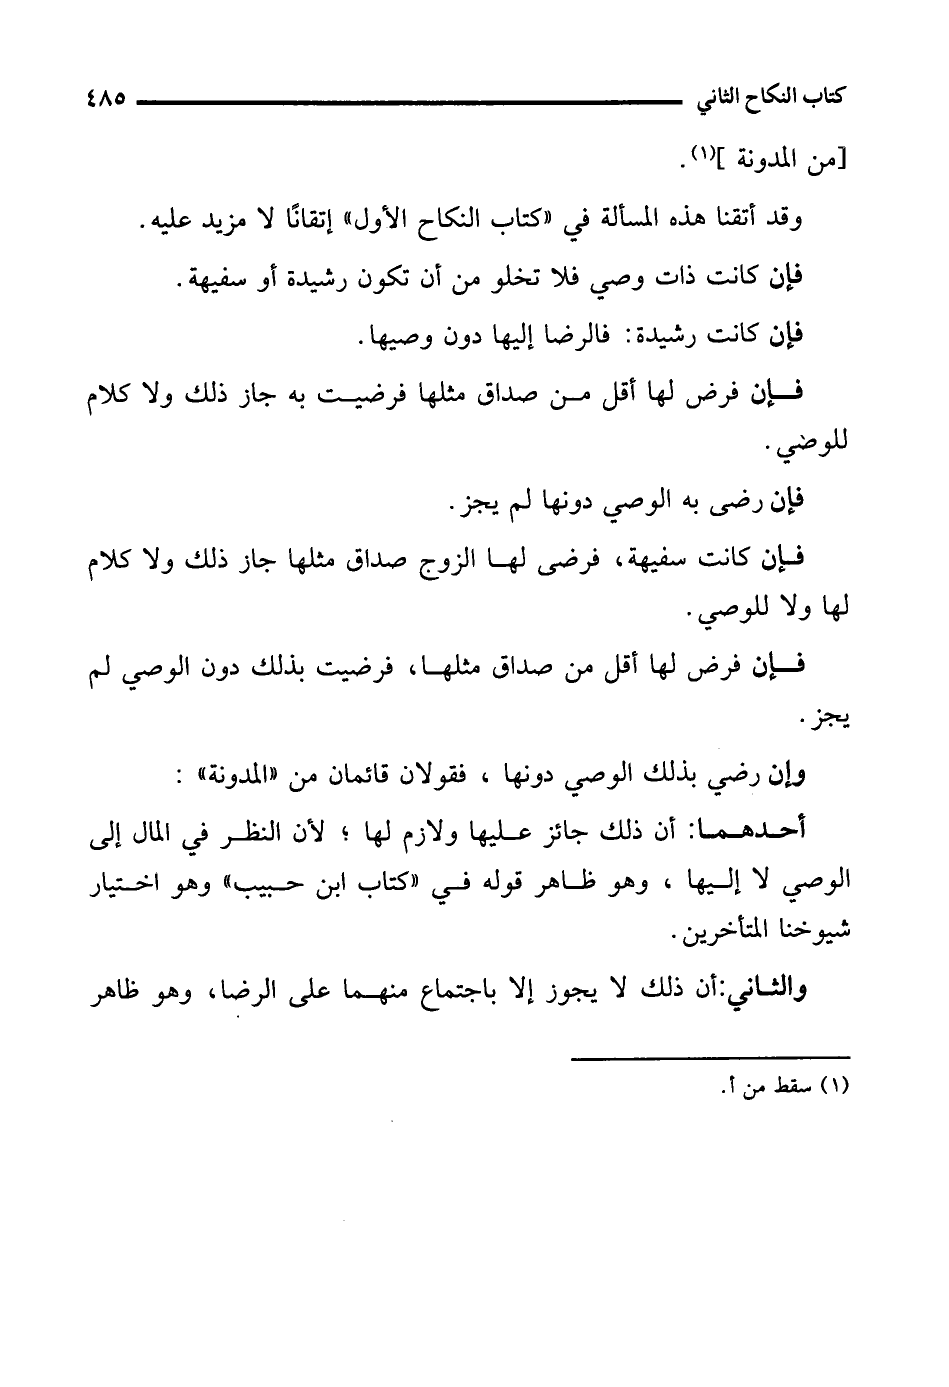 كتاب النكاح الثاني ٤٨٥
[من المدونة ](١).
وقد أتقنا هذه المسألة في «كتاب النكاح الأول» إتقانًا لا مزيد عليه.
فإن كانت ذات وصي فلا تخلو من أن تكون رشيدة أو سفيهة.
فإن كانت رشيدة: فالرضا إليها دون وصيها.
فإن فرض لها أقل من صداق مثلها فرضيت به جاز ذلك ولا كلام
للوضي.
فإن رضى به الوصي دونها لم يجز.
فإن كانت سفيهة، فرضى لها الزوج صداق مثلها جاز ذلك ولا كلام
لها ولا للوصي.
فإن فرض لها أقل من صداق مثلها، فرضيت بذلك دون الوصي لم
يجز.
وإن رضي بذلك الوصي دونها ، فقولان قائمان من «المدونة» :
أحدهما: أن ذلك جائز عليها ولازم لها ؛ لأن النظر في المال إلى
الوصي لا إليها ، وهو ظاهر قوله في «كتاب ابن حبيب» وهو اختيار
شيوخنا المتأخرين.
والثاني:أن ذلك لا يجوز إلا باجتماع منهما على الرضا، وهو ظاهر
(١) سقط من أ.